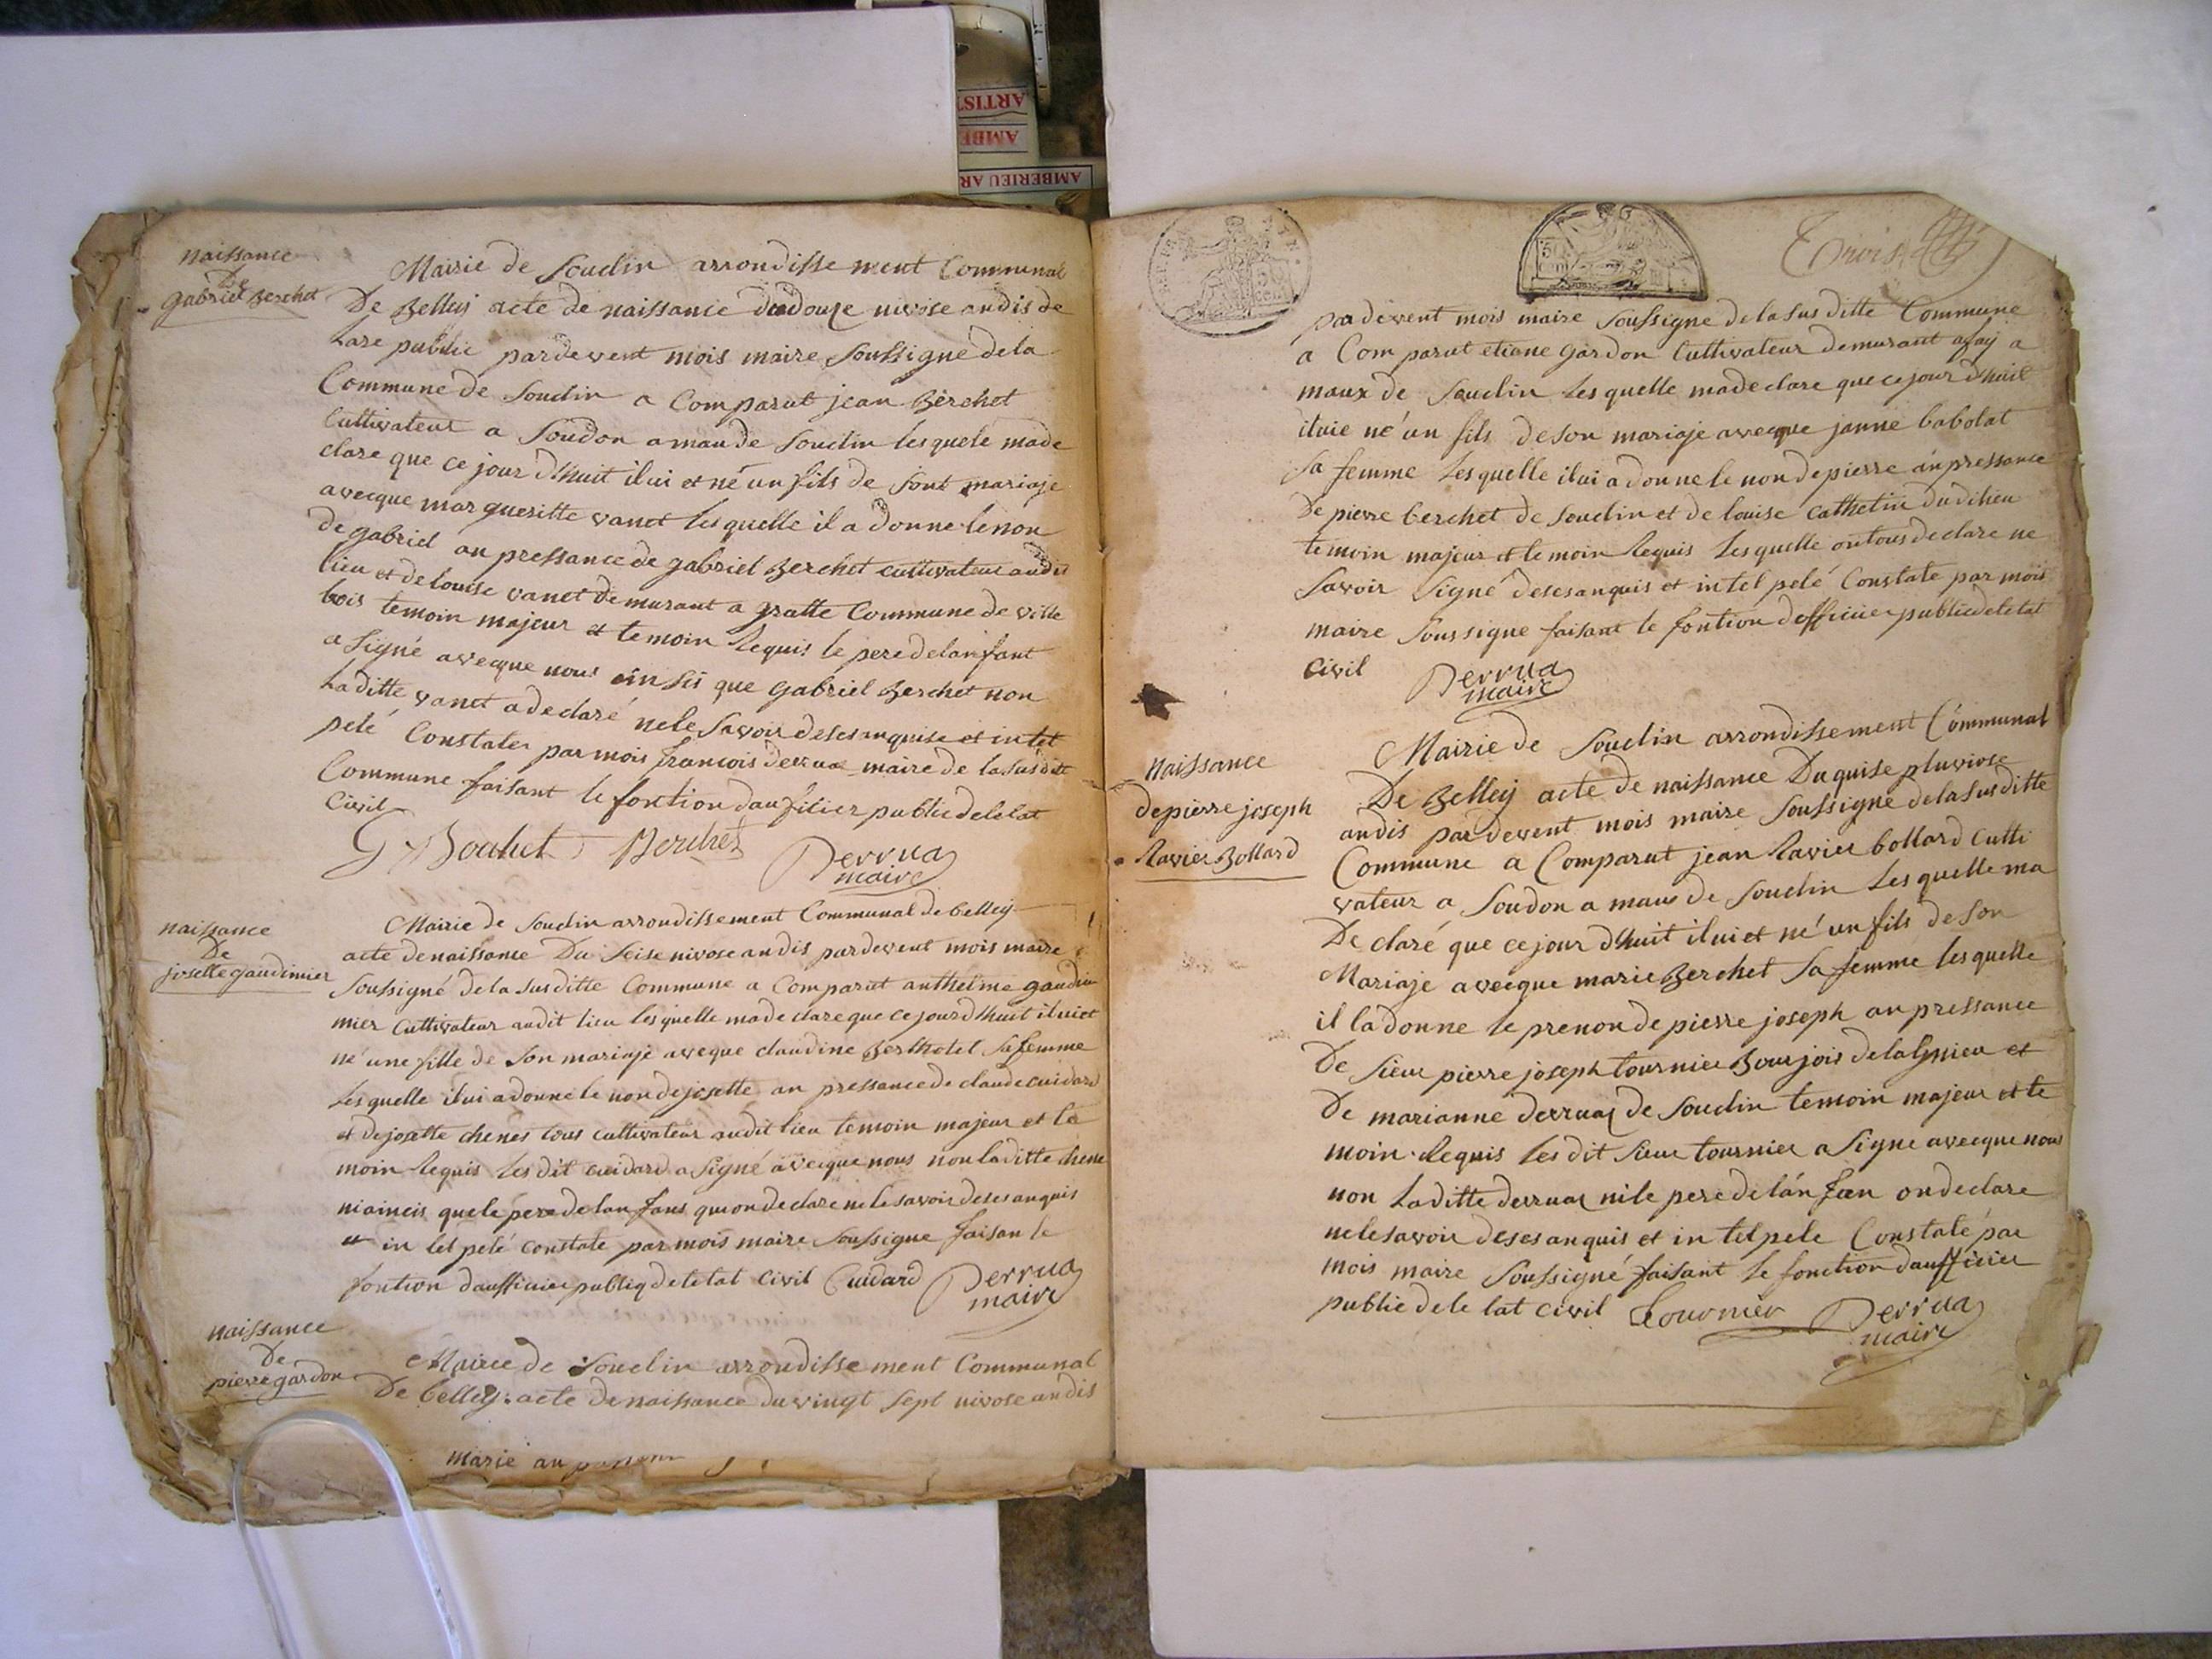 ARTIS
AMBE
AMBERIEU AR
naissance
De
gabriel Berchet
Mairie de Souclin arrondisse ment Communal
De Belley acte de naissance du douze nivose an dis de
la re public par devent mois maire soussigne de la
Commune de Souclin a Comparut jean Berchet
Cultivateur a Soudon amau de Souclin lesquele made
clare que ce jour d'huit il ui et né un fils de sont mariaje
avecque margueritte vanet lesquelle il a donne le non
de gabriel an pressance de gabriel Berchet cultivateur audit
lieu et de louise vanet demurant a gratte Commune de ville
bois temoin majeur et temoin Requis le pere delanfant
a signé avecque nous ainsis que gabriel Berchet non
la ditte vanet a declaré nele savoir deses anquise et in tel
pelé Constater par mois francois derruaz maire de la susditt
Commune faisant le fontion daufficier public deletat
Civil
G Berchet Berchet
Derruaz
maire
naissance
De
josette gaudimier
Mairie de Souclin arrondissement Communal de belley
acte denaissance Du Seise nivose an dis par devent mois maire
Soussigné dela susditte Commune a Comparut anthelme gaudi
mier Cultivateur audit lieu lesquelle made clare que ce jour d huit il ui et
né une fille de son mariaje aveque claudine Berthelet sa femme
lesquelle il ui a donne le non de josette an pressance de claude cuidard
et de josette chenes tous cultivateur audit lieu temoin majeur et te
moin Requis les dit cuidard a signé avecque nous non la ditte chene
ni aincis que le pere de lan fans qui on declare ne le savoir deses anquis
et in tel pelé constate par mois maire soussigne faisan le
fontion d aufficier publiq deletat civil Cuidard Derruaz
maire
naissance
de
pierre gardon
Mairie de Souclin arrondisse ment Communal
De belley acte de naissance du vingt sept nivose an dis
marie an
Trois
50
par devent mois maire soussigne dela sus ditte Commune
a Com parut etiane gardon Cultivateur demurant a fay a
maux de Souclin lesquelle made clare que ce jour d huit
il uie né un fils de son mariaje avecque janne babolat
sa femme lesquelle il ui a donne le non de pierre an pressance
De pierre berchet de Souclin et de louise Cathelin du di lieu
temoin majeur et temoin Requis lesquelle on tous declare ne
Savoir signé deses anquis et in tel pelé Constate par mois
maire soussigne faisant le fontion d officier public de letat
Civil
Derruaz
maire
Naissance
de pierre joseph
Ravier Bollard
Mairie de Souclin arrondissement Communal
De Belley acte de naissance Du quise pluviose
an dis par devent mois maire soussigne de la sus ditte
Commune a Comparut jean Ravier bollard Culti
vateur a Soudon a maus de Souclin lesquelle ma
De claré que ce jour d huit il ui et né un fils de son
Mariaje avecque marie Berchet sa femme lesquelle
il la donne le prenon de pierre joseph an pressance
De sieur pierre joseph tournier Bourjois de lagnieu et
De marianne derruaz de Souclin temoin majeur et te
moin Requis les dit sieur tournier a signe avecque nous
non la ditte derruaz ni le pere de lán fan on declare
ne le savoir deses anquis et in tel pele Constaté par
mois maire soussigné faisant le fonction d aufficier
public dele tat civil Tournier Derruaz
maire